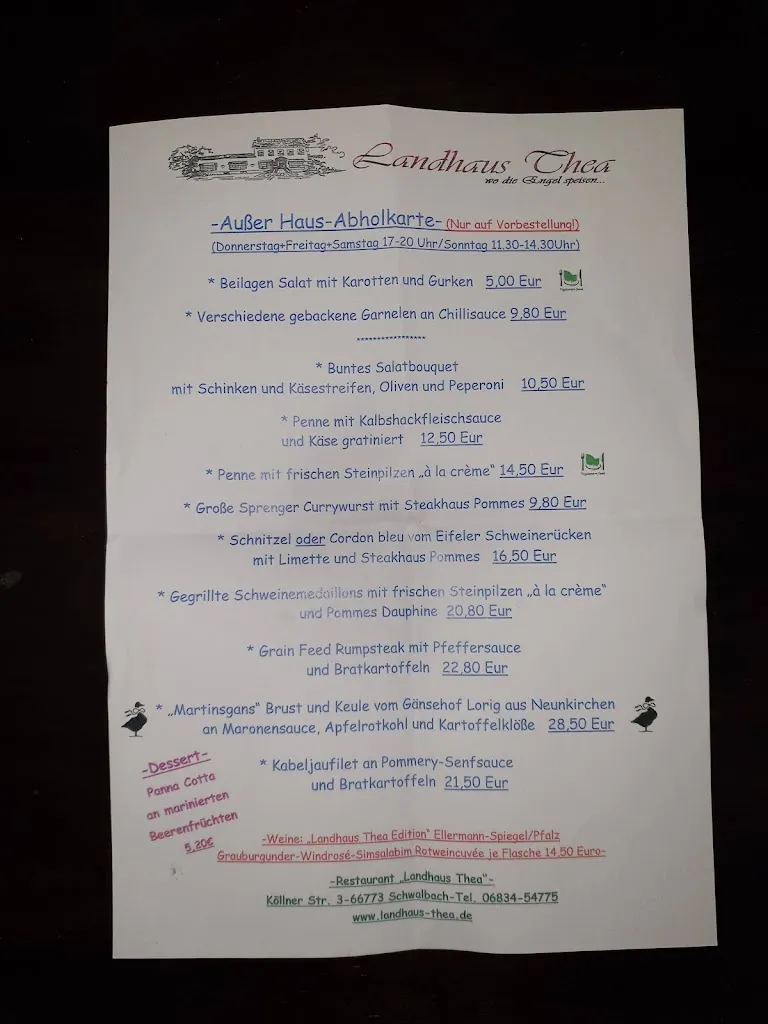 Landhaus Thea
wo die Engel speisen...
-Außer Haus-Abholkarte- (Nur auf Vorbestellung!)
(Donnerstag+Freitag+Samstag 17-20 Uhr/Sonntag 11.30-14.30Uhr)
* Beilagen Salat mit Karotten und Gurken 5,00 Eur
* Verschiedene gebackene Garnelen an Chillisauce 9,80 Eur
*****************
* Buntes Salatbouquet
mit Schinken und Käsestreifen, Oliven und Peperoni 10,50 Eur
* Penne mit Kalbshackfleischsauce
und Käse gratiniert 12,50 Eur
* Penne mit frischen Steinpilzen „à la crème“ 14,50 Eur
* Große Sprenger Currywurst mit Steakhaus Pommes 9,80 Eur
* Schnitzel oder Cordon bleu vom Eifeler Schweinerücken
mit Limette und Steakhaus Pommes 16,50 Eur
* Gegrillte Schweinemedaillons mit frischen Steinpilzen „à la crème“
und Pommes Dauphine 20,80 Eur
* Grain Feed Rumpsteak mit Pfeffersauce
und Bratkartoffeln 22,80 Eur
* „Martinsgans“ Brust und Keule vom Gänsehof Lorig aus Neunkirchen
an Maronensauce, Apfelrotkohl und Kartoffelklöße 28,50 Eur
* Kabeljaufilet an Pommery-Senfsauce
und Bratkartoffeln 21,50 Eur
-Dessert-
Panna Cotta
an marinierten
Beerenfrüchten
5,20€
-Weine: „Landhaus Thea Edition“ Ellermann-Spiegel/Pfalz
Grauburgunder-Windrosé-Simsalabim Rotweincuvée je Flasche 14,50 Euro-
-Restaurant „Landhaus Thea“-
Köllner Str. 3-66773 Schwalbach-Tel. 06834-54775
www.landhaus-thea.de